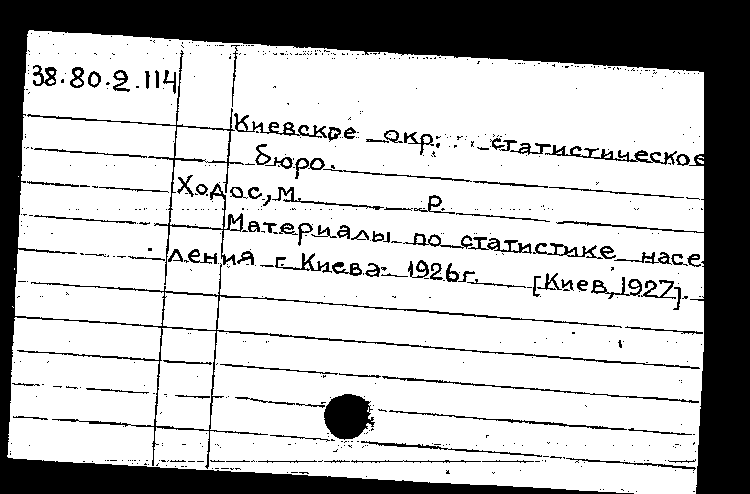 38.80.2.114
Киевское окр. статистическое
бюро.
Ходос, М. р.
Материалы по статистике насе
ления г. Киева 1926г. [Киев, 1927].